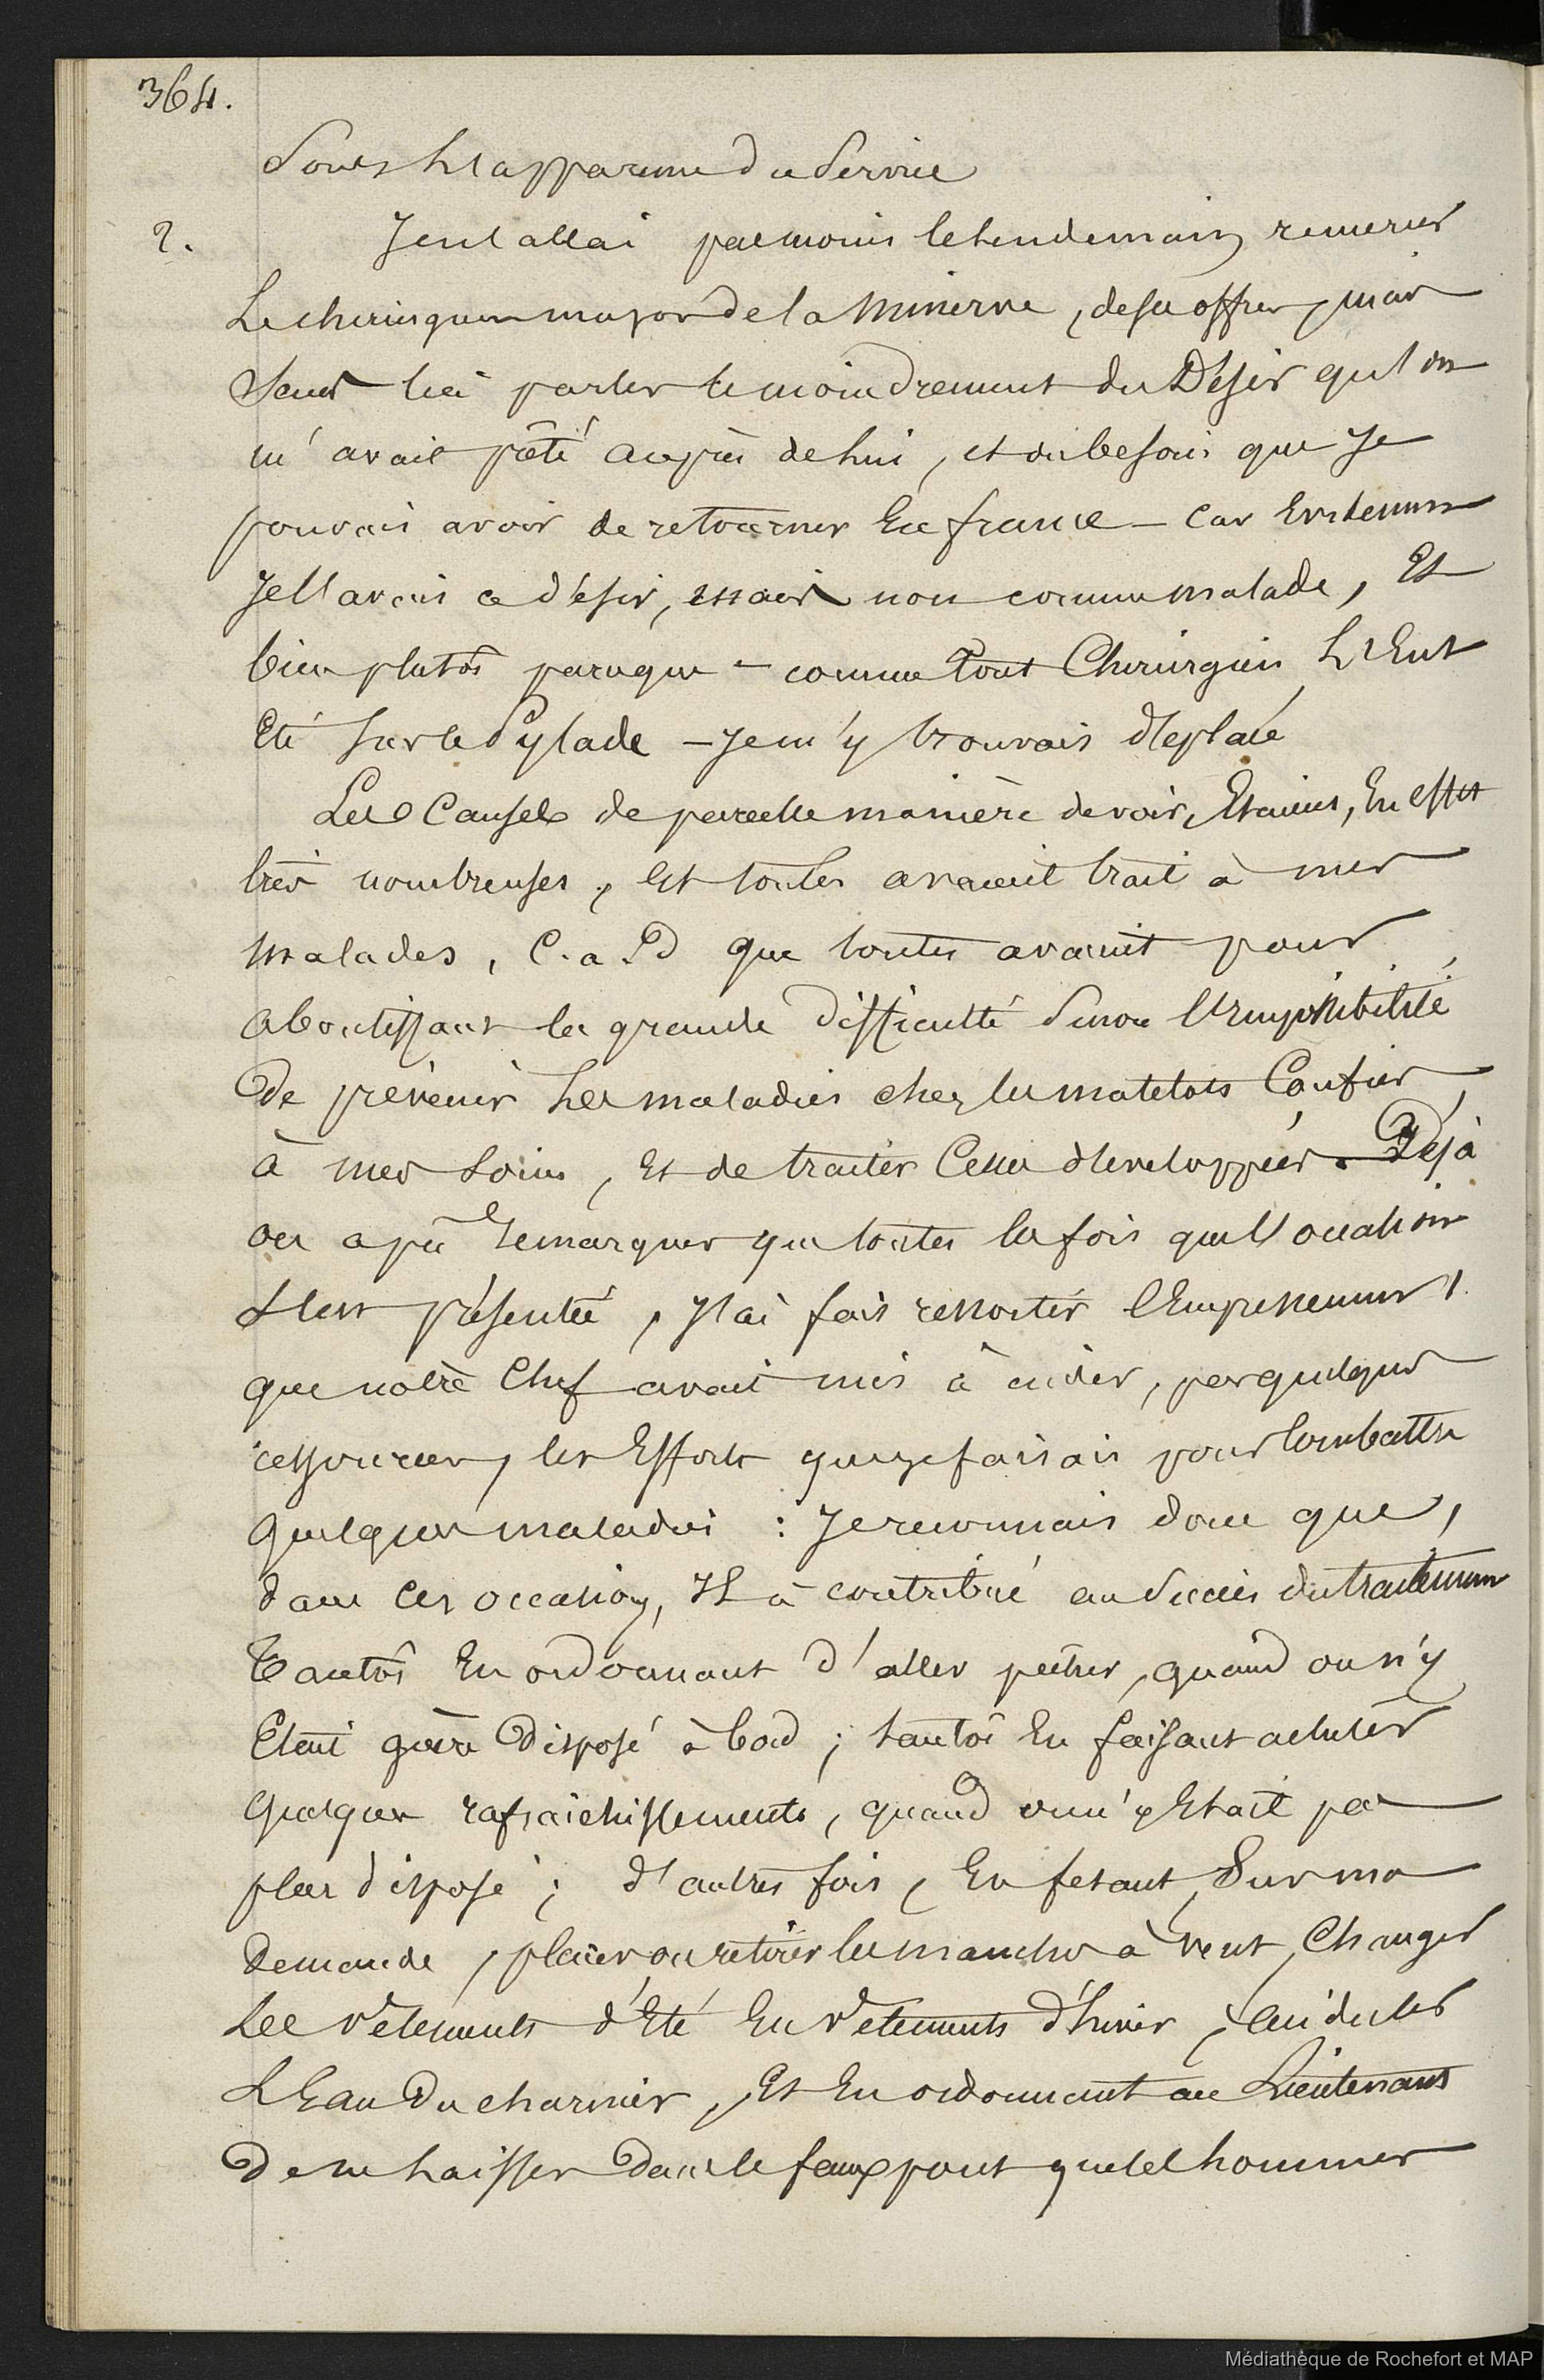 364.
Sous l'apparence du Service
2. Je n'allai pas moins le lendemain remercier
Le chirurgien major de la Minerve, de ses offres, mais
Sans lui parler le moindrement du Désir qu'on
m'avait prêté auprès de lui, et du besoin que Je
pouvais avoir de retourner En france — Car Evidemmen
Je l'avais ce désir, mais non comme malade, Et
bien plutôt parceque — comme tout Chirurgien L'Eut
Eté Sur le Pylade — Je m'y trouvais déplacé
Les Causes de pareille manière de voir, Etaient, En effet
très nombreuses, Et toutes avaient trait à mes
malades, C. a. D que toutes avaient pour
aboutissant la grande difficulté Sinon l'Impossibilité
De prévenir Les maladies chez les matelots Confiés
à mes Soins, Et de traiter Celles développées. Déjà
on a pû Remarquer que toutes les fois que l'occasion
S'est présentée, J'ai fait ressortir l'Empressement
que notre Chef avait mis à aider, par quelques
ressources, les Efforts que je faisais pour Combattre
quelques maladies : Je reconnais donc que,
dans ces occasions, Il a contribué au Succès du traitemen
Tantôt En ordonnant d'aller pêcher, quand on n'y
Etait guère Disposé à bord ; tantôt En faisant acheter
quelques rafraichissements, quand on n'y Etait pas
plus disposé ; d'autres fois, En fesant, Sur ma
Demande, placer ou retirer les manches à vent, Changer
Les vêtements d'Eté En vêtements d'hiver, aciduler
L'Eau Du charnier, Et En ordonnant au Lieutenant
De ne laisser Dans le faux pont que les hommes
Médiathèque de Rochefort et MAP